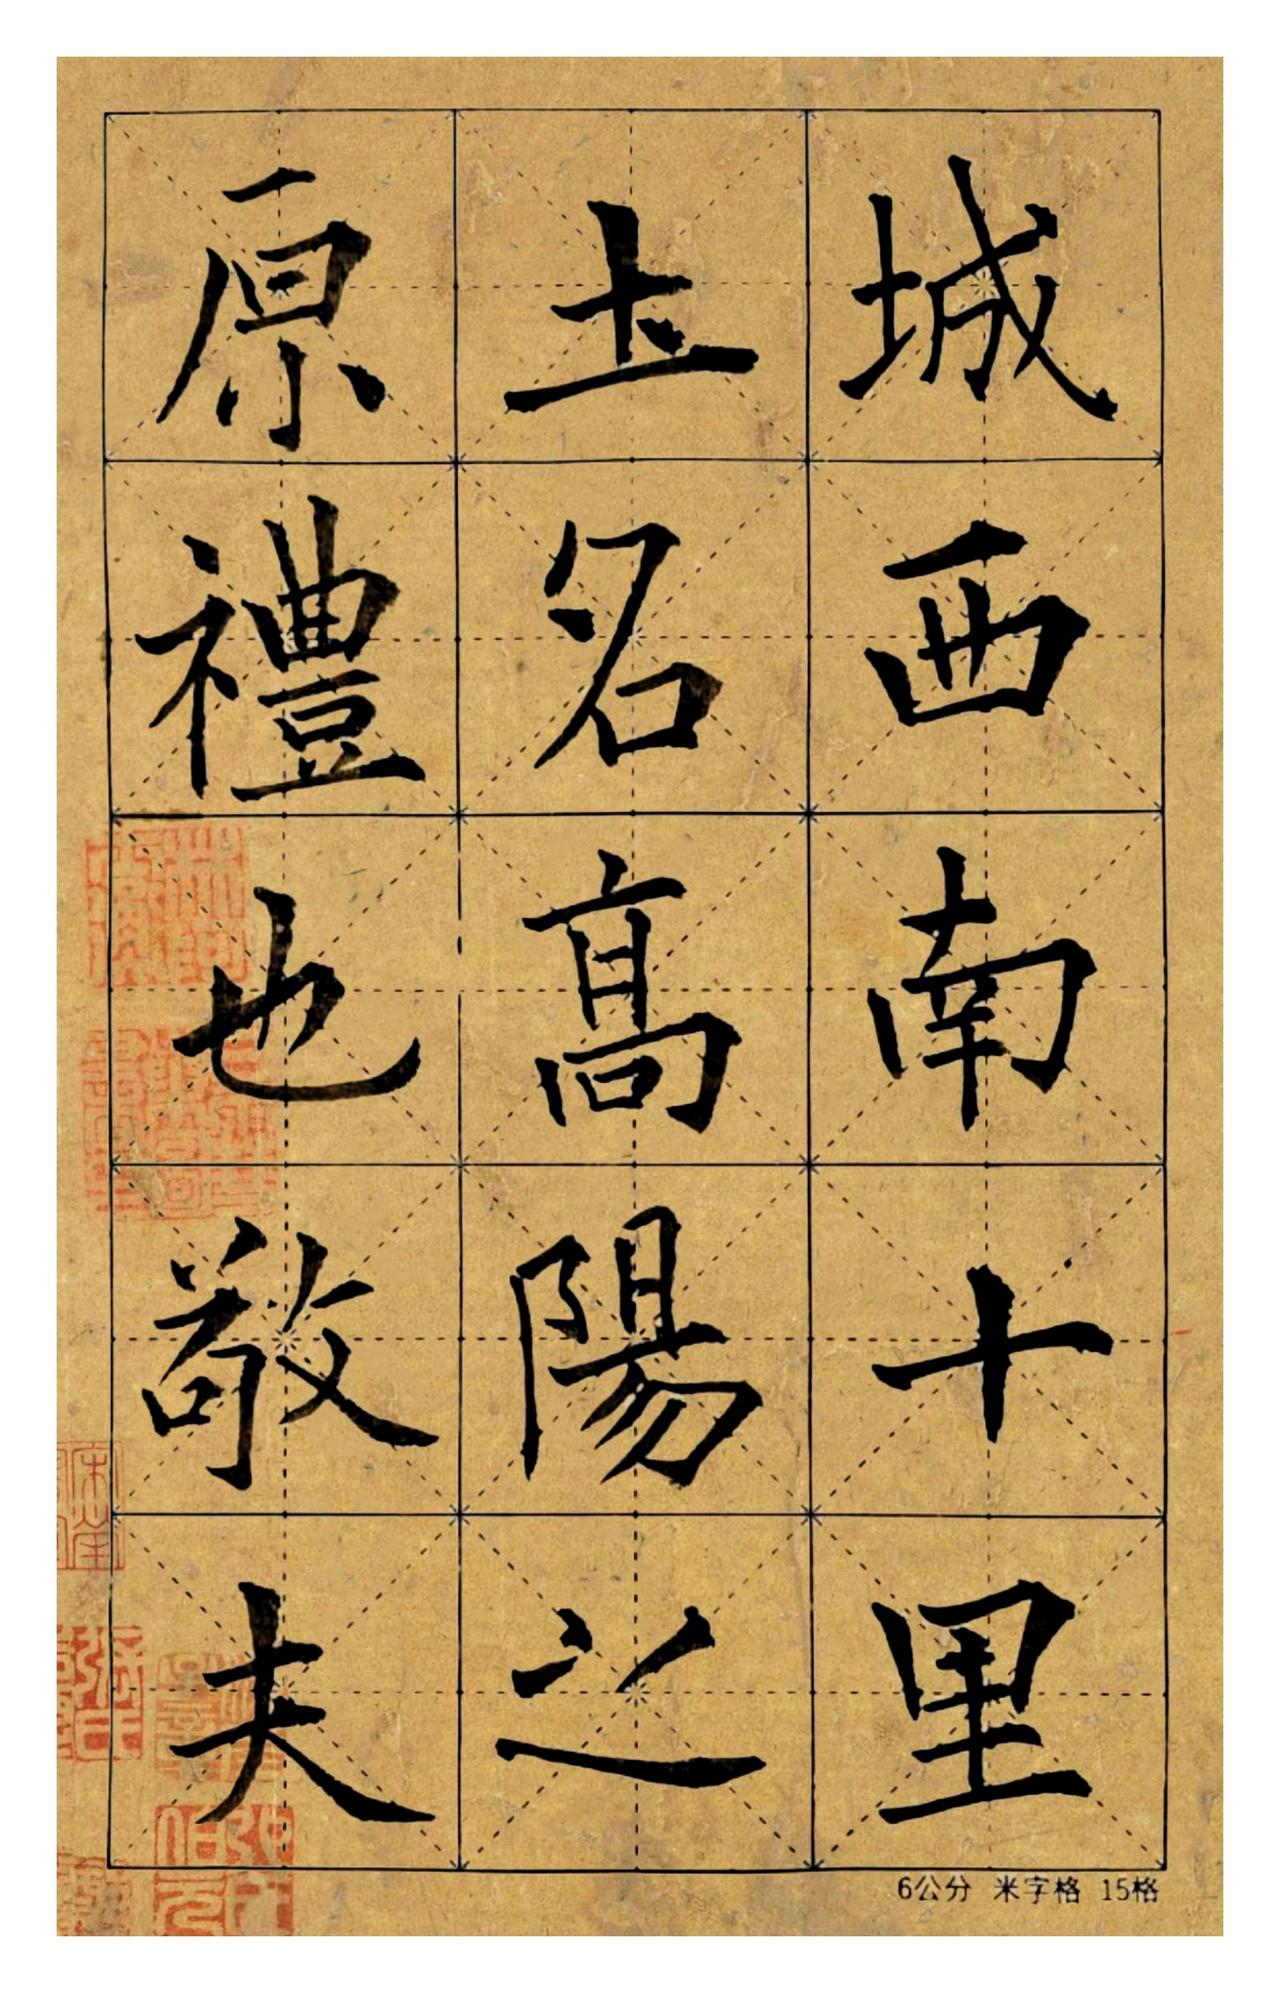 城西南十里
土名高陽之
原禮也敬夫
6公分 米字格 15格